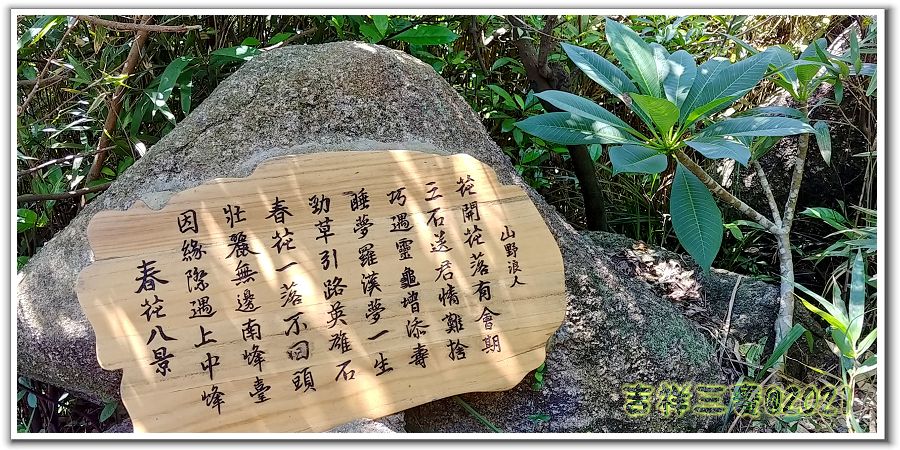 春花八景
因緣際遇上中峰
壯麗無邊南峰臺
春花一落不回頭
勁草引路英雄石
睡夢羅漢夢一生
巧遇靈龜增添壽
三石送君情難捨
花開花落有會期
山野浪人
吉祥三寶@2021